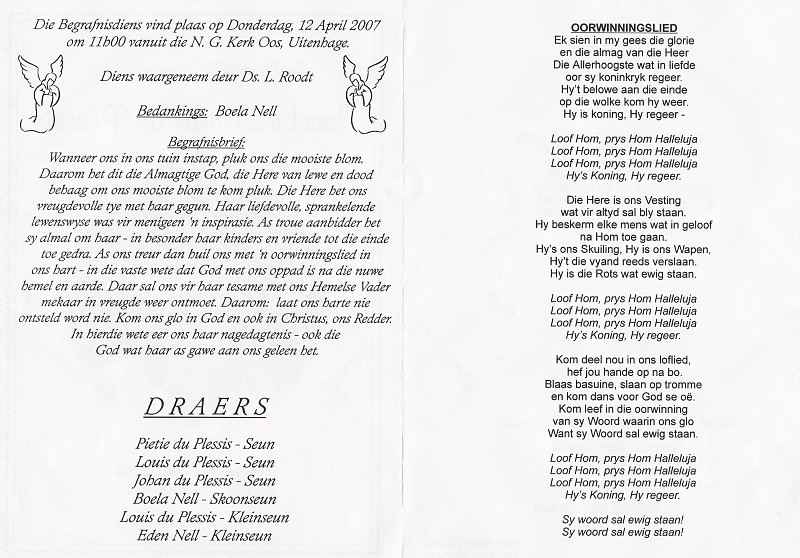 Die Begrafnisdiens vind plaas op Donderdag, 12 April 2007
om 11h00 vanuit die N. G. Kerk Oos, Uitenhage.
Diens waargeneem deur Ds. L. Roodt
Bedankings: Boela Nell
Begrafnisbrief:
Wanneer ons in ons tuin instap, pluk ons die mooiste blom.
Daarom het dit die Almagtige God, die Here van lewe en dood
behaag om ons mooiste blom te kom pluk. Die Here het ons
vreugdevolle tye met haar gegun. Haar liefdevolle, sprankelende
lewenswyse was vir menigeen 'n inspirasie. As troue aanbidder het
sy almal om haar - in besonder haar kinders en vriende tot die einde
toe gedra. As ons treur dan huil ons met 'n oorwinningslied in
ons hart - in die vaste wete dat God met ons oppad is na die nuwe
hemel en aarde. Daar sal ons vir haar tesame met ons Hemelse Vader
mekaar in vreugde weer ontmoet. Daarom: laat ons harte nie
ontsteld word nie. Kom ons glo in God en ook in Christus, ons Redder.
In hierdie wete eer ons haar nagedagtenis - ook die
God wat haar as gawe aan ons geleen het.
DRAERS
Pietie du Plessis - Seun
Louis du Plessis - Seun
Johan du Plessis - Seun
Boela Nell - Skoonseun
Louis du Plessis - Kleinseun
Eden Nell - Kleinseun
OORWINNINGSLIED
Ek sien in my gees die glorie
en die almag van die Heer
Die Allerhoogste wat in liefde
oor sy koninkryk regeer.
Hy't belowe aan die einde
op die wolke kom hy weer.
Hy is koning, Hy regeer -
Loof Hom, prys Hom Halleluja
Loof Hom, prys Hom Halleluja
Loof Hom, prys Hom Halleluja
Hy's Koning, Hy regeer.
Die Here is ons Vesting
wat vir altyd sal bly staan.
Hy beskerm elke mens wat in geloof
na Hom toe gaan.
Hy's ons Skuiling, Hy is ons Wapen,
Hy't die vyand reeds verslaan.
Hy is die Rots wat ewig staan.
Loof Hom, prys Hom Halleluja
Loof Hom, prys Hom Halleluja
Loof Hom, prys Hom Halleluja
Hy's Koning, Hy regeer.
Kom deel nou in ons loflied,
hef jou hande op na bo.
Blaas basuine, slaan op tromme
en kom dans voor God se oë.
Kom leef in die oorwinning
van sy Woord waarin ons glo
Want sy Woord sal ewig staan.
Loof Hom, prys Hom Halleluja
Loof Hom, prys Hom Halleluja
Loof Hom, prys Hom Halleluja
Hy's Koning, Hy regeer.
Sy woord sal ewig staan!
Sy woord sal ewig staan!